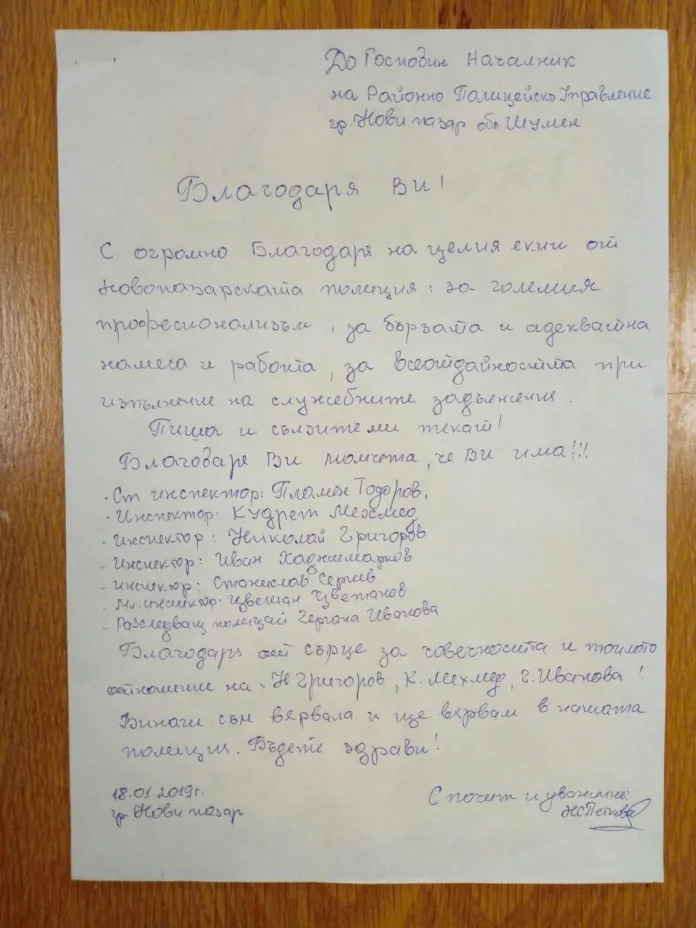 До Господин Началник
на Районно Полицейско Управление
гр. Нови пазар обл. Шумен
Благодаря Ви!
С огромно Благодаря на целия екип от
Новопазарската полиция: за големия
професионализъм, за бързата и адекватна
намеса и работа, за всеотдайността при
изпълнение на служебните задължения.
Пиша и сълзите ми текат!
Благодаря Ви момчета, че Ви има!!!
- Ст. инспектор: Пламен Тодоров.
- Инспектор: Кудрет Мехмед
- инспектор: Николай Григоров
- инспектор: Иван Хаджимарков
- инспектор: Станислав Сергев
- Мл. инспектор: Цветан Цветанов
- Разследващ полицай Гергана Иванова
Благодаря от сърце за човечността и топлото
отношение на: Н Григоров, К. Мехмед, Г. Иванова!
Винаги съм вярвала и ще вярвам в нашата
полиция. Бъдете здрави!
18.01.2019г.
гр. Нови пазар
С почит и уважение:
Петкова